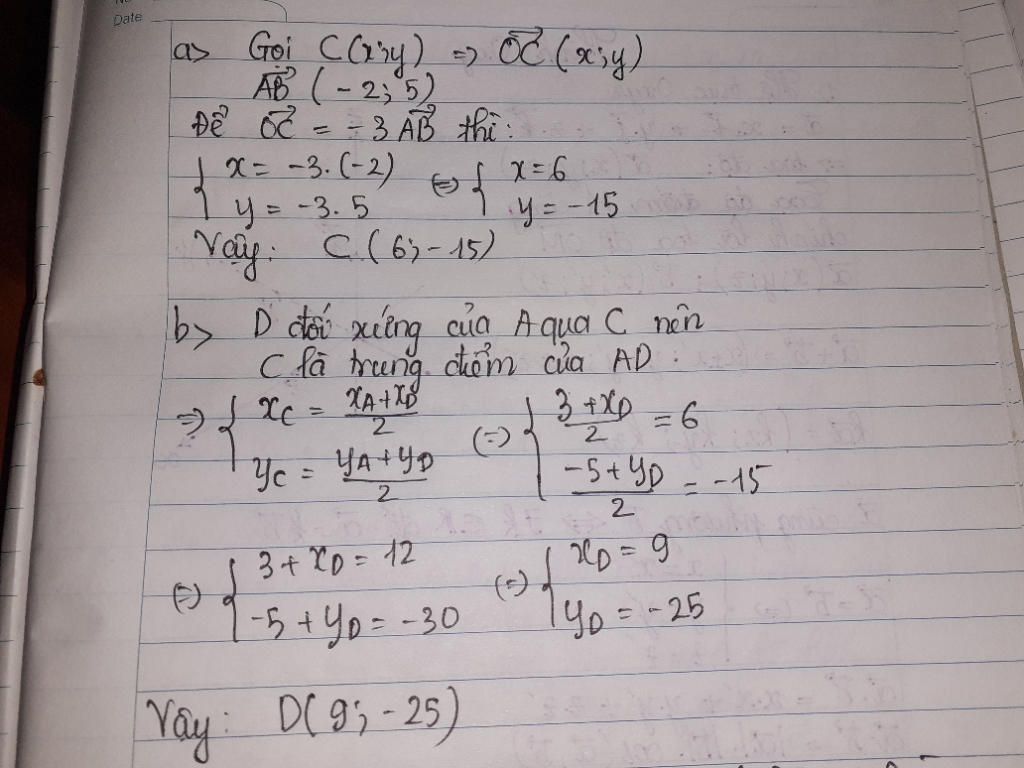 Date
a> Gọi C(x;y) => OC→ (x;y)
AB→ (-2; 5)
Để OC→ = -3 AB→ thì:
{ x = -3.(-2) (=) { x = 6
{ y = -3.5 { y = -15
Vậy: C (6; -15)
b> D đối xứng của A qua C nên
C là trung điểm của AD:
=> { x_C = (x_A + x_D)/2 (=) { (3 + x_D)/2 = 6
{ y_C = (y_A + y_D)/2 { (-5 + y_D)/2 = -15
(=) { 3 + x_D = 12 (=) { x_D = 9
{ -5 + y_D = -30 { y_D = -25
Vậy: D(9; -25)